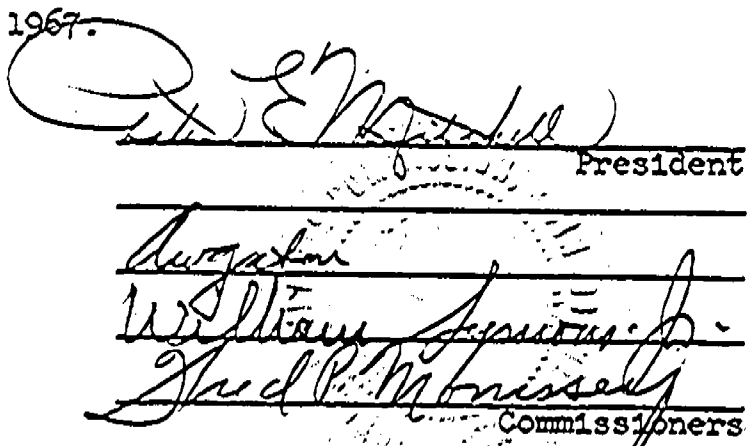 1967.
Peter E. Mitchell
President
William Symons Jr.
Fred P. Morrissey
Commissioners